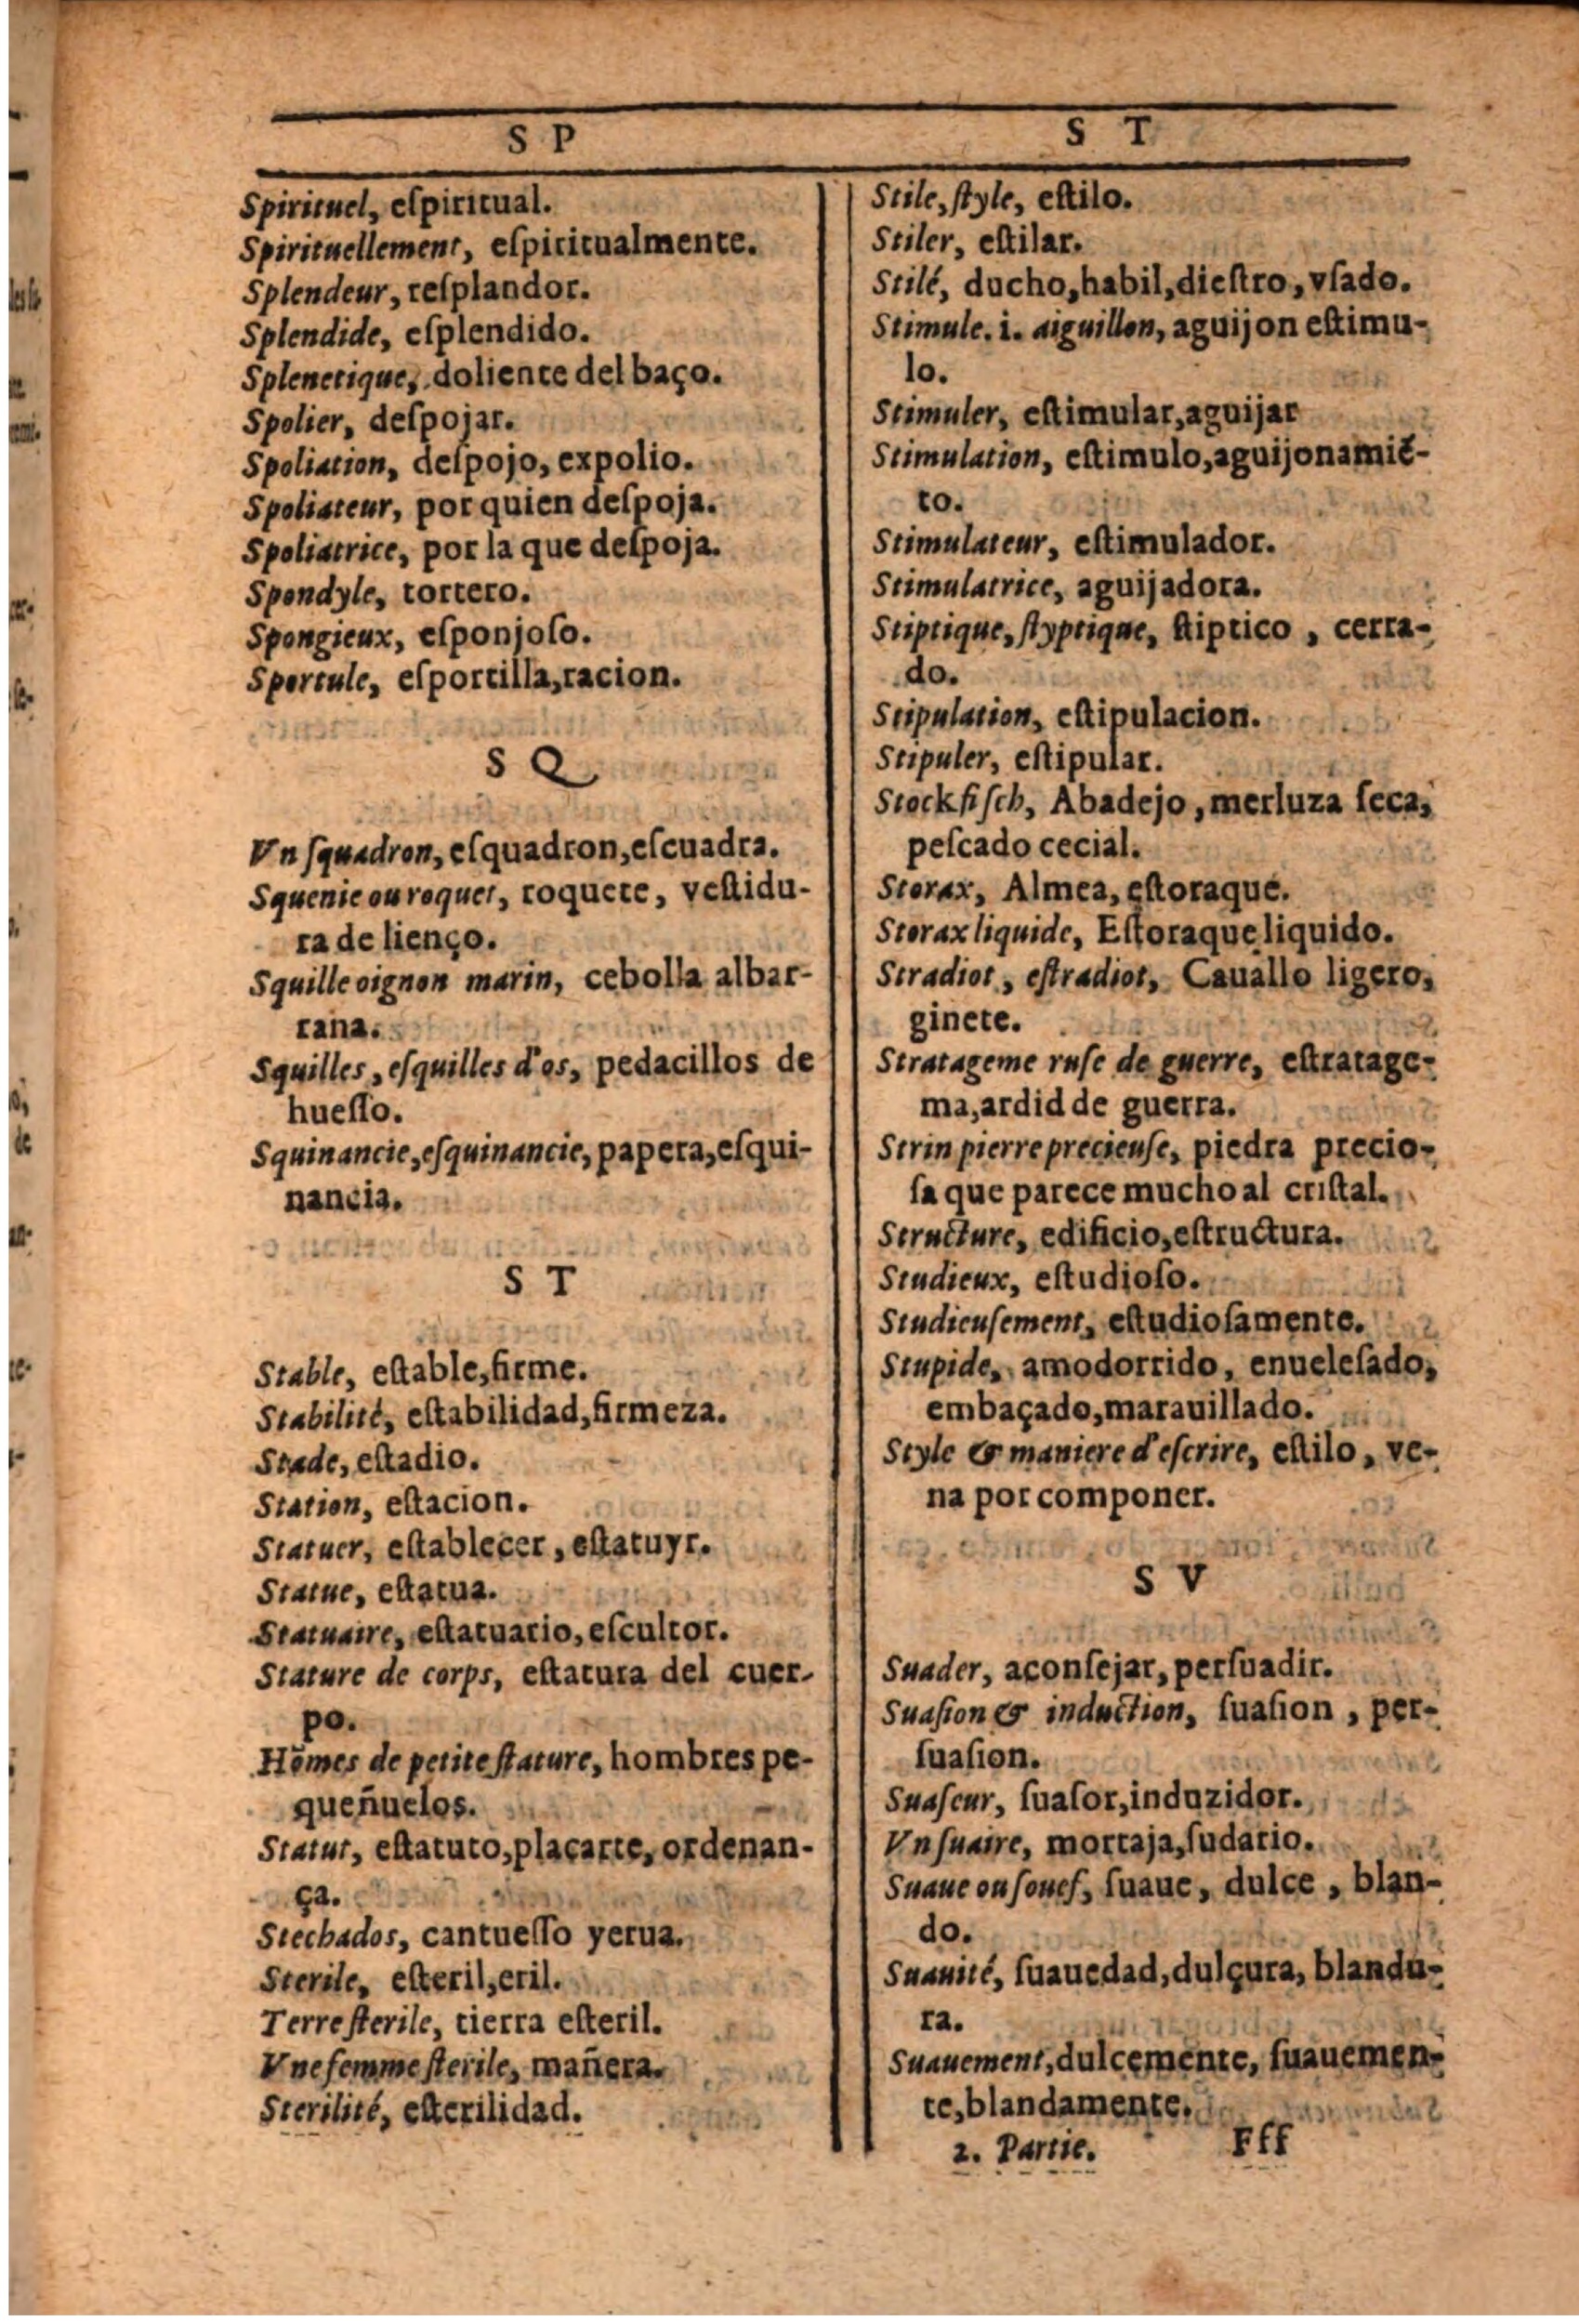 S P
Spirituel, eſpiritual.
Spirituellement, eſpiritualmente.
Splendeur, reſplandor.
Splendide, eſplendido.
Splenetique, doliente del baço.
Spolier, deſpojar.
Spoliation, deſpojo, expolio.
Spoliateur, por quien deſpoja.
Spoliatrice, por la que deſpoja.
Spondyle, tortero.
Spongieux, eſponjoſo.
Sportule, eſportilla, racion.
S Q
Vn ſquadron, eſquadron, eſcuadra.
Squenie ou roquet, roquete, veſtidu-
ra de lienço.
Squille oignon marin, cebolla albar-
rana.
Squilles, eſquilles d'os, pedacillos de
hueſſo.
Squinancie, eſquinancie, papera, eſqui-
nancia.
S T
Stable, eſtable, firme.
Stabilité, eſtabilidad, firmeza.
Stade, eſtadio.
Station, eſtacion.
Statuer, eſtablecer, eſtatuyr.
Statue, eſtatua.
Statuaire, eſtatuario, eſcultor.
Stature de corps, eſtatura del cuer-
po.
Hōmes de petite ſtature, hombres pe-
queñuelos.
Statut, eſtatuto, placarte, ordenan-
ça.
Stechados, cantueſſo yerua.
Sterile, eſteril, eril.
Terre ſterile, tierra eſteril.
Vne femme ſterile, mañera.
Sterilité, eſterilidad.
S T
Stile, ſtyle, eſtilo.
Stiler, eſtilar.
Stilé, ducho, habil, dieſtro, vſado.
Stimule. i. aiguillon, aguijon eſtimu-
lo.
Stimuler, eſtimular, aguijar
Stimulation, eſtimulo, aguijonamiē-
to.
Stimulateur, eſtimulador.
Stimulatrice, aguijadora.
Stiptique, ſtyptique, ſtiptico, cerra-
do.
Stipulation, eſtipulacion.
Stipuler, eſtipular.
Stockfiſch, Abadejo, merluza ſeca,
peſcado cecial.
Storax, Almea, eſtoraque.
Storax liquide, Eſtoraque liquido.
Stradiot, eſtradiot, Cauallo ligero,
ginete.
Stratageme ruſe de guerre, eſtratage-
ma, ardid de guerra.
Strin pierre precieuſe, piedra precio-
ſa que parece mucho al criſtal.
Structure, edificio, eſtructura.
Studieux, eſtudioſo.
Studieuſement, eſtudioſamente.
Stupide, amodorrido, enueleſado,
embaçado, marauillado.
Style & maniere d'eſcrire, eſtilo, ve-
na por componer.
S V
Suader, aconſejar, perſuadir.
Suaſion & induction, ſuaſion, per-
ſuaſion.
Suaſeur, ſuaſor, induzidor.
Vn ſuaire, mortaja, ſudario.
Suaue ou ſouef, ſuaue, dulce, blan-
do.
Suauité, ſuauedad, dulçura, blandu-
ra.
Suauement, dulcemente, ſuauemen-
te, blandamente.
2. Partie. Fff